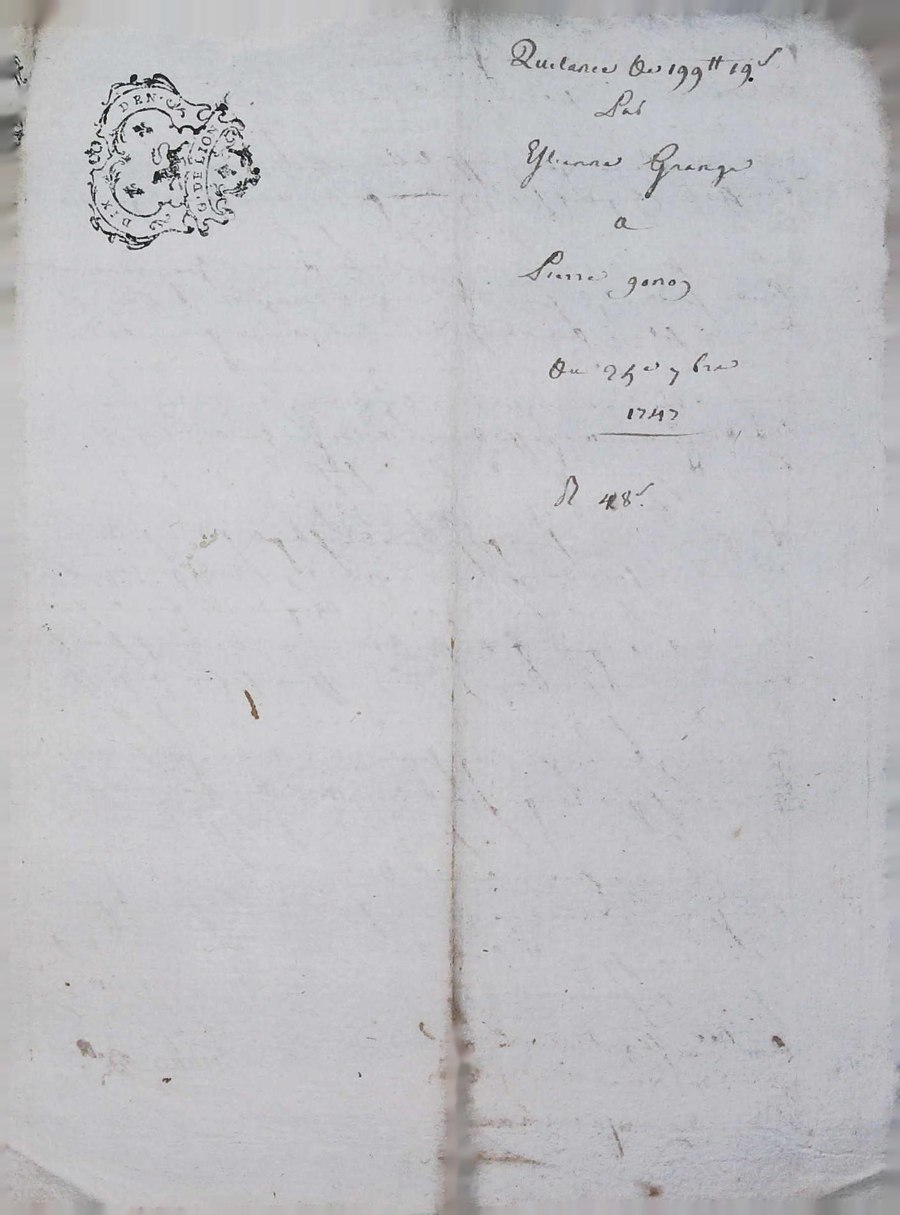 DIX DEN.
G. DE LION
Quitance de 199tt 19s
Par
Estienne Grange
a
Pierre gonon
Du 25e 7bre
1747
R 48s